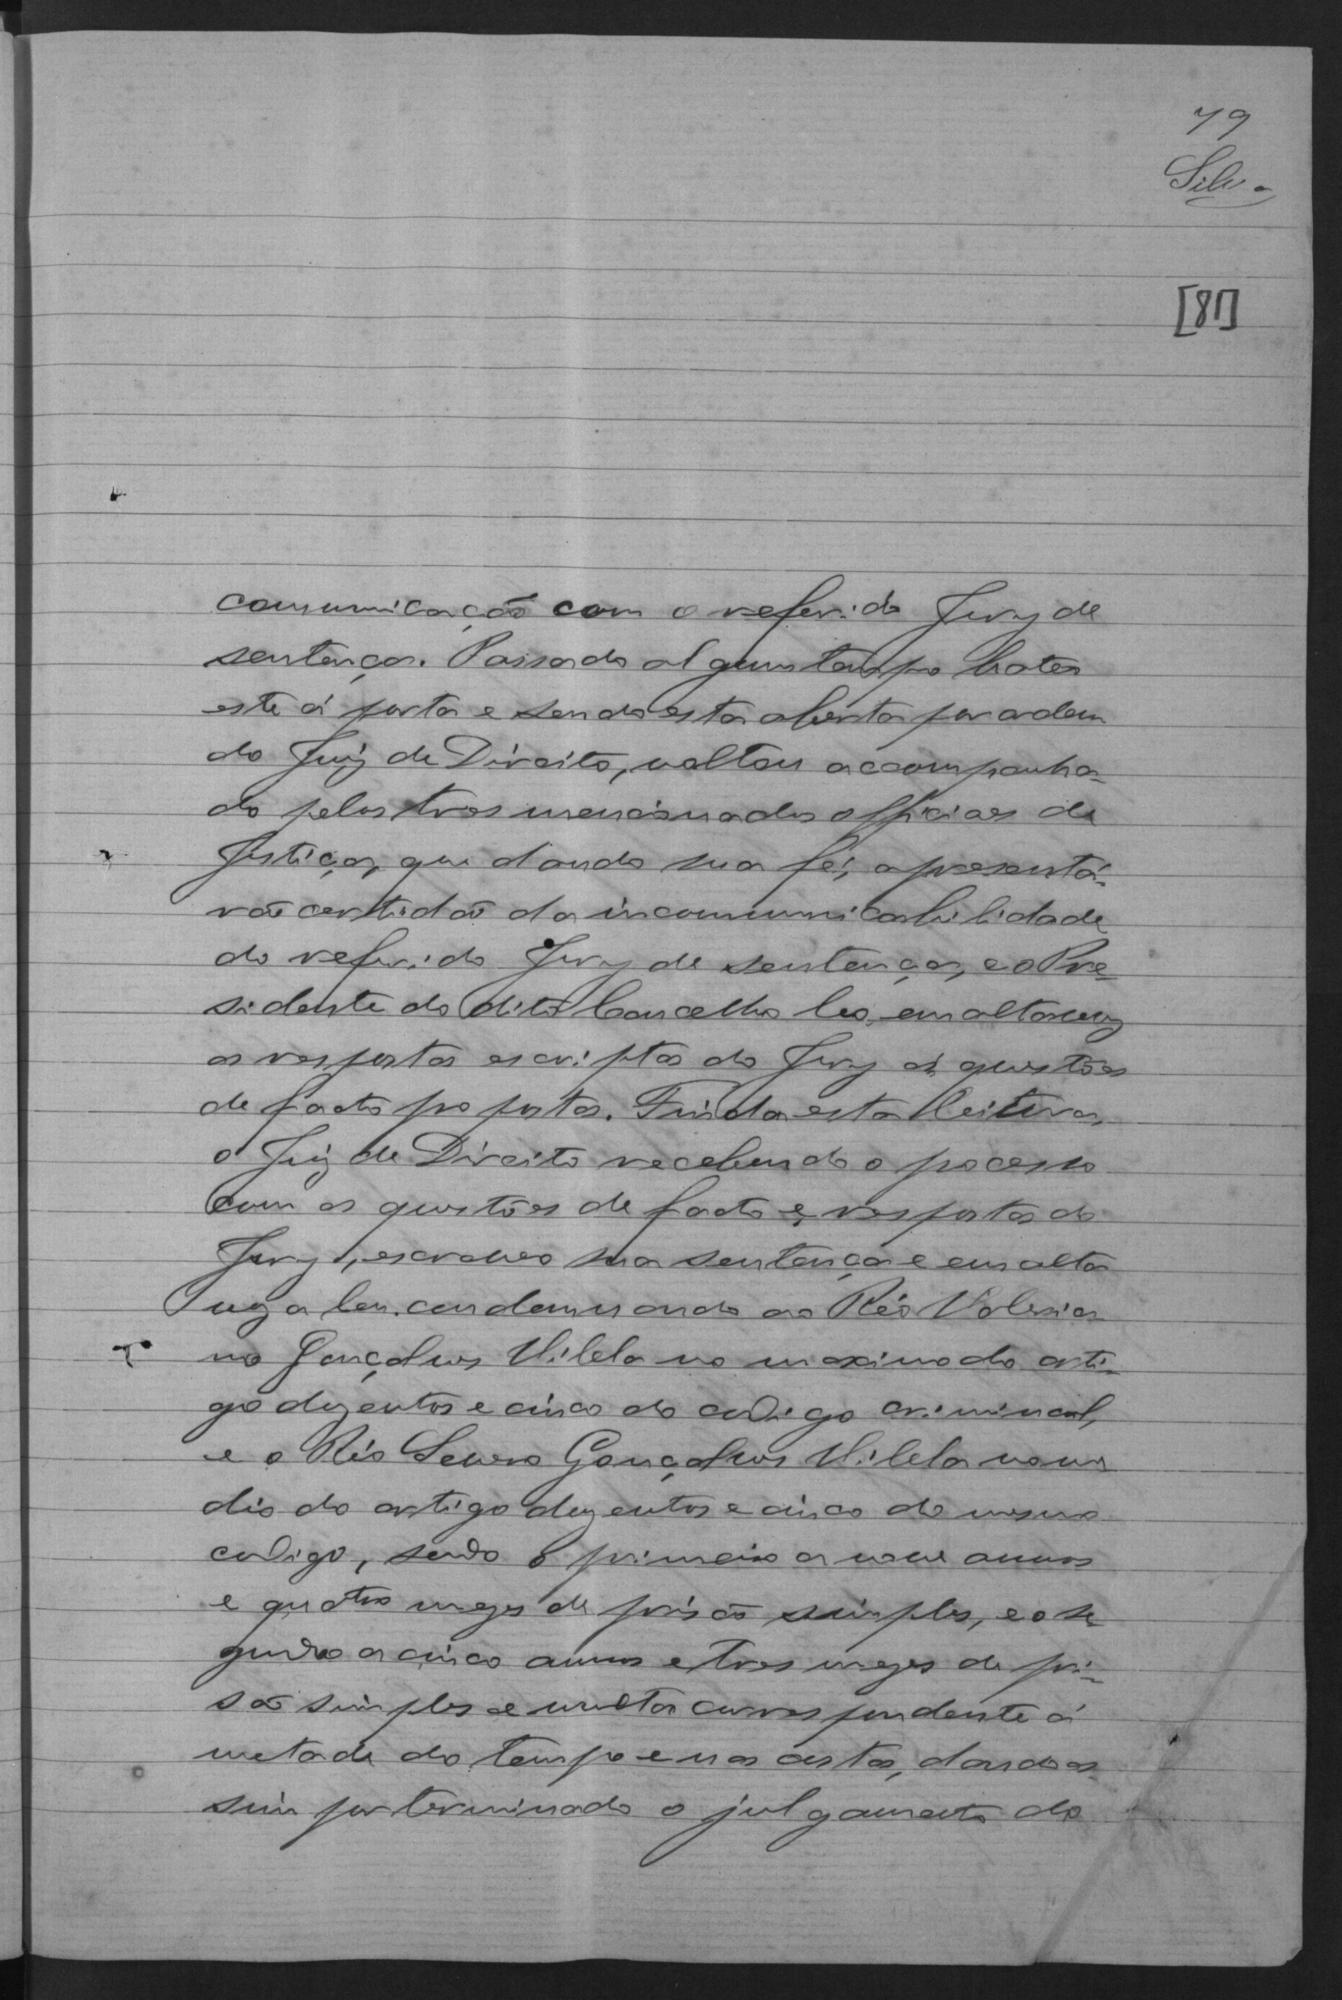 79
Silva
[81]
communicação com o referido Jury de
sentença. Passado algum tempo bateo
este á porta e sendo esta aberta por ordem
do Juiz de Direito, voltou accompanha-
do pelos tres mencionados officiaes de
Justiça, que dando sua fé, apresentá-
rão certidão da incommunicabilidade
do referido Jury de sentença, e o Pre-
sidente do dito Concelho leo em alta voz
as respostas escriptas do Jury ás questões
de facto propostas. Finda esta leitura,
o Juiz de Direito recebendo o processo
com as questões de facto e respostas do
Jury, escreveo sua sentença e em alta
voz a leu, condemnando ao Réo Valeria-
no Gonçalves Vilela no maximo do arti-
go duzentos e cinco do codigo criminal,
e o Réo Severo Gonçalves Vilela no me-
dio do artigo duzentos e cinco do mesmo
codigo, sendo o primeiro a nove annos
e quatro mezes de prisão simples, e o se-
gundo a cinco annos e tres mezes de pri-
são simples e multa correspondente á
metade do tempo e nas custas, dando as-
sim por terminado o julgamento do